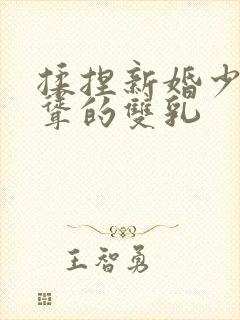 揉捏新婚少
聳的雙乳
王智勇